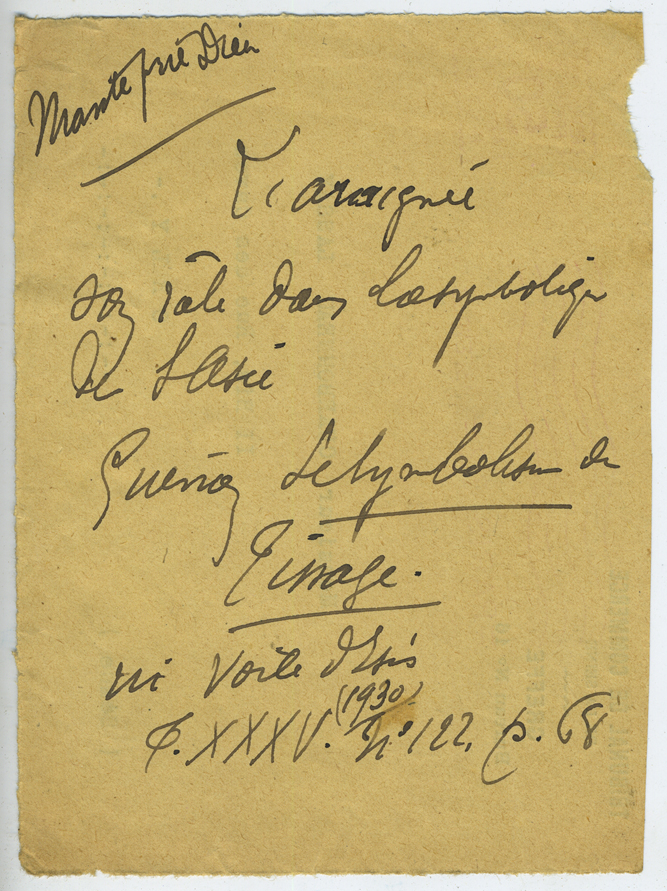 Mante prie Dieu
L'araignée
son rôle dans la symbolique
de l'Asie
Guénon Le symbolisme du
Tissage.
in Voile d'Isis
(1930)
T. XXXV. N° 122, p. 68